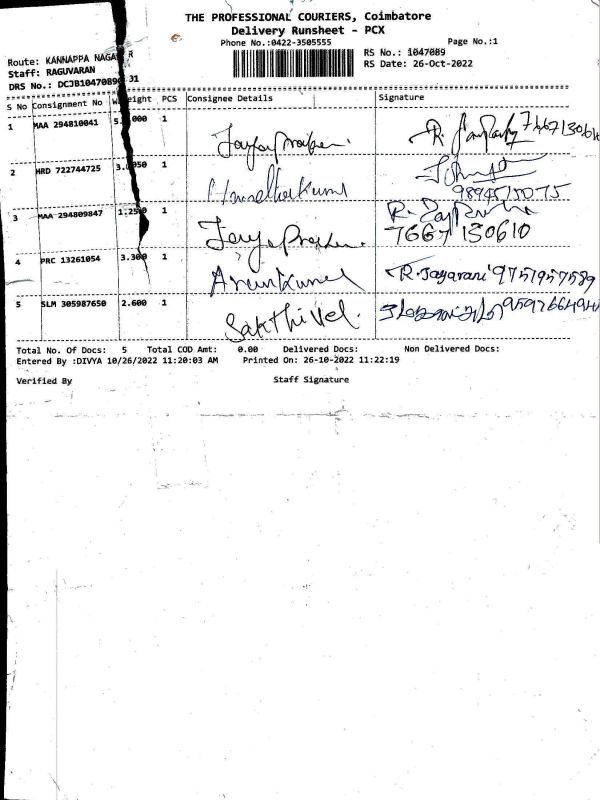 THE PROFESSIONAL COURIERS, Coimbatore
Delivery Runsheet - PCX
Phone No.:0422-3505555
Page No.:1
Route: KANNAPPA NAGA R
RS No.: 1047089
Staff: RAGUVARAN
RS Date: 26-Oct-2022
DRS No.: DCJB1047089 31
S No Consignment No Weight PCS Consignee Details Signature
1 MAA 294810041 5. 000 1 7667130610
2 HRD 722744725 3. 050 1
9894575075
3 MAA 294809847 1.250 1
7667 130610
4 PRC 13261054 3.300 1 Arunkumar R.Jayarani 9751957589
5 SLM 305987650 2.600 1 Sakthivel.
Total No. Of Docs: 5 Total COD Amt: 0.00 Delivered Docs: Non Delivered Docs:
Entered By :DIVYA 10/26/2022 11:20:03 AM Printed On: 26-10-2022 11:22:19
Verified By Staff Signature